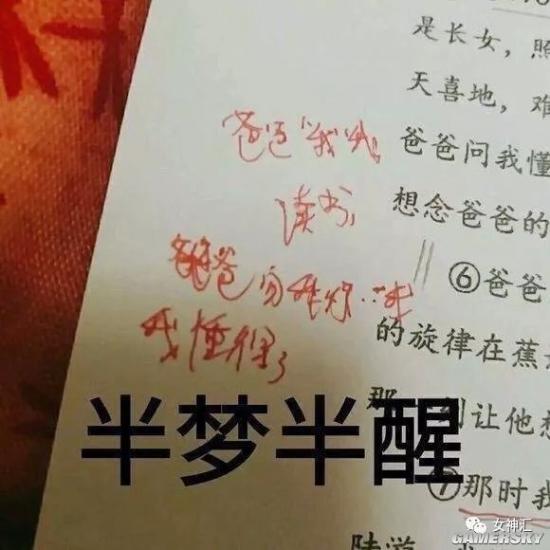 是长女，照
天喜地，难
爸爸问我懂
想念爸爸的
⑥爸爸
的旋律在蕉
那一刻让他想
⑦那时我
陆游
爸爸
读书，
爸爸
我懂得了
半梦半醒
女神汇
GAMERSKY